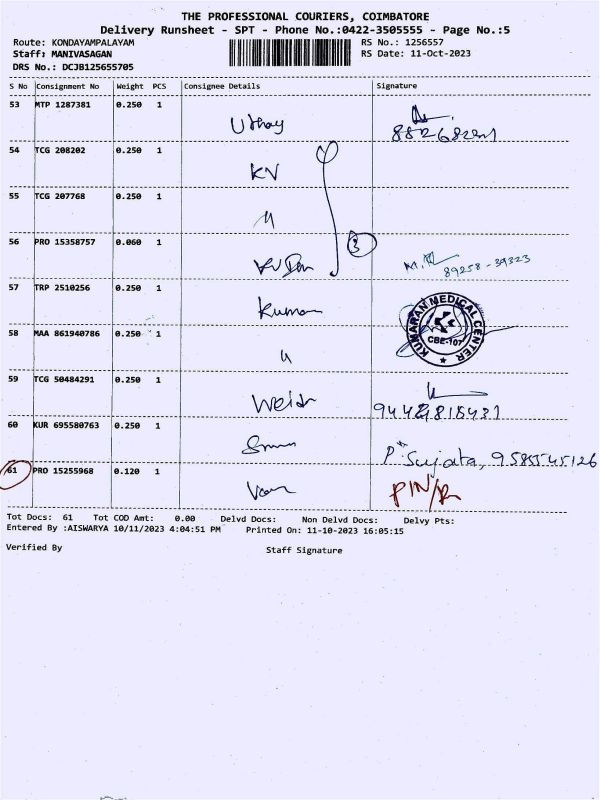 THE PROFESSIONAL COURIERS, COIMBATORE
Delivery Runsheet - SPT - Phone No.:0422-3505555 - Page No.:5
Route: KONDAYAMPALAYAM RS No.: 1256557
Staff: MANIVASAGAN RS Date: 11-Oct-2023
DRS No.: DCJB125655705
S No Consignment No Weight PCS Consignee Details Signature
53 MTP 1287381 0.250 1
Uthay
54 TCG 208202 0.250 1
KV
55 TCG 207768 0.250 1
3
56 PRO 15358757 0.060 1
89258-39323
57 TRP 2510256 0.250 1
Kumaran
KUMARAN MEDICAL CENTER
CBE-107
58 MAA 861940786 0.250 1
59 TCG 50484291 0.250 1
60 KUR 695580763 0.250 1
P. Sujata, 9585545126
61 PRO 15255968 0.120 1
PIN/R
Tot Docs: 61 Tot COD Amt: 0.00 Delvd Docs: Non Delvd Docs: Delvy Pts:
Entered By :AISWARYA 10/11/2023 4:04:51 PM Printed On: 11-10-2023 16:05:15
Verified By Staff Signature